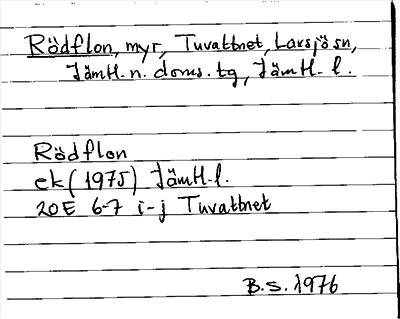 Rödflon, myr, Tuvattnet, Laxsjö sn,
Jämtl. n. doms. tg, Jämtl. l.
Rödflon
ek (1975) Jämtl. l.
20E 6-7 i-j Tuvattnet
B.S. 1976